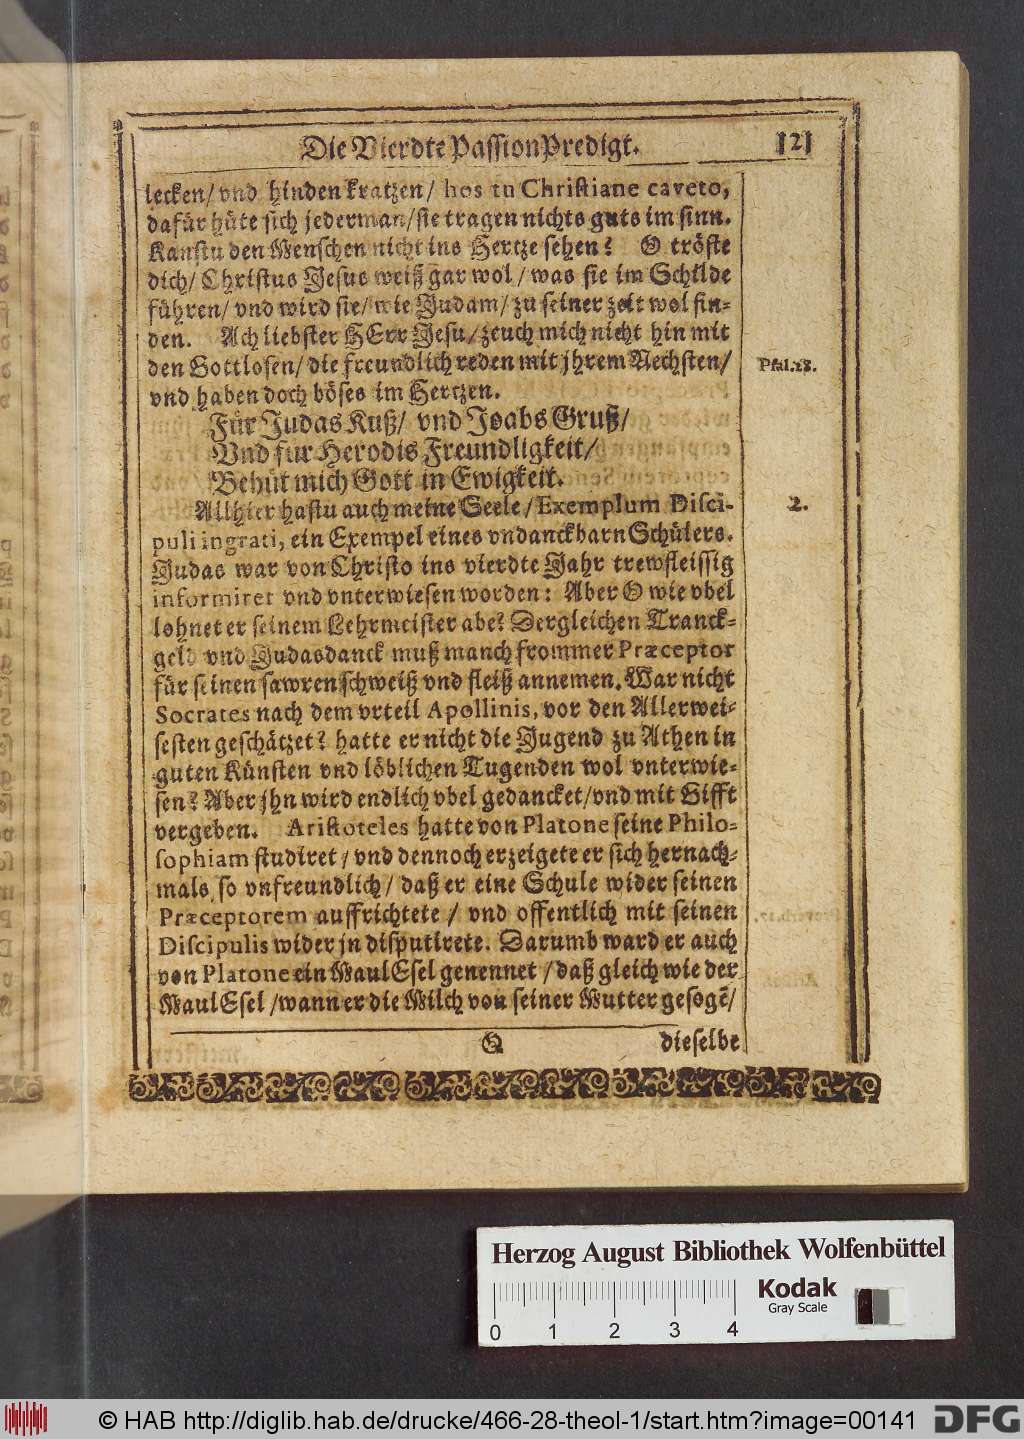 Die Vierdte PassionPredigt. 121
lecken/ vnd hinden kratzen/ hos tu Christiane caveto,
dafür hüte sich jederman/ sie tragen nichts guts im sinn.
Kanstu den Menschen nicht ins Hertze sehen? O tröste
dich/ Christus Jesus weiß gar wol/ was sie im Schilde
führen/ vnd wird sie/ wie Judam/ zu seiner zeit wol fin-
den. Ach liebster HErr Jesu/ zeuch mich nicht hin mit
den Gottlosen/ die freundlich reden mit jhrem Nechsten/
Psal.28.
vnd haben doch böses im Hertzen.
Für Judas Kuß/ vnd Joabs Gruß/
Vnd für Herodis Freundligkeit/
Behüt mich Gott in Ewigkeit.
Allhier hastu auch meine Seele/ Exemplum Disci-
2.
puli ingrati, ein Exempel eines vndanckbarn Schülers.
Judas war von Christo ins vierdte Jahr trewfleissig
informiret vnd vnterwiesen worden: Aber O wie vbel
lohnet er seinem Lehrmeister abe? Dergleichen Tranck-
geld vnd Judasdanck muß manch frommer Præceptor
für seinen sawren schweiß vnd fleiß annemen. War nicht
Socrates nach dem vrteil Apollinis, vor den Allerwei-
sesten geschätzet? hatte er nicht die Jugend zu Athen in
guten Künsten vnd löblichen Tugenden wol vnterwie-
sen? Aber jhn wird endlich vbel gedancket/ vnd mit Gifft
vergeben. Aristoteles hatte von Platone seine Philo-
sophiam studiret/ vnd dennoch erzeigete er sich hernach-
mals so vnfreundlich/ daß er eine Schule wider seinen
Præceptorem auffrichtete/ vnd offentlich mit seinen
Discipulis wider jn disputirete. Darumb ward er auch
von Platone ein MaulEsel genennet/ daß gleich wie der
MaulEsel/ wann er die Milch von seiner Mutter gesogē/
Q dieselbe
Herzog August Bibliothek Wolfenbüttel
Kodak
Gray Scale
0 1 2 3 4
© HAB http://diglib.hab.de/drucke/466-28-theol-1/start.htm?image=00141 DFG